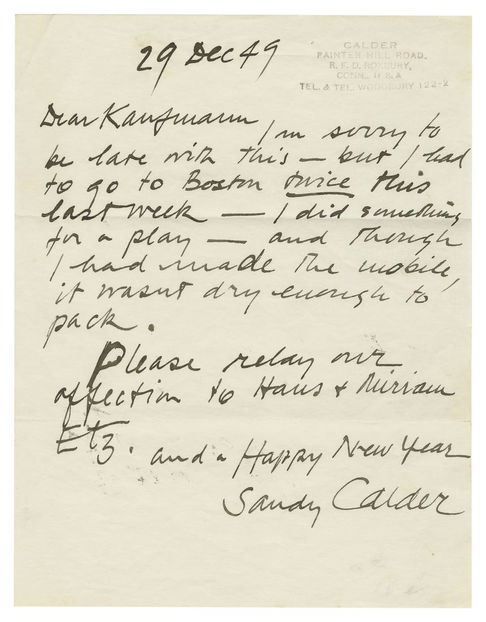 29 Dec 49
CALDER
PAINTER HILL ROAD,
R. F. D. ROXBURY,
CONN., U.S.A
TEL. & TEL. WOODBURY 122-2
Dear Kaufmann, I'm sorry to
be late with this — but I had
to go to Boston twice this
last week — I did something
for a play — and though
I had made the mobile,
it wasnt dry enough to
pack.
Please relay our
affection to Hans & Miriam
Etz. and a Happy New Year
Sandy Calder